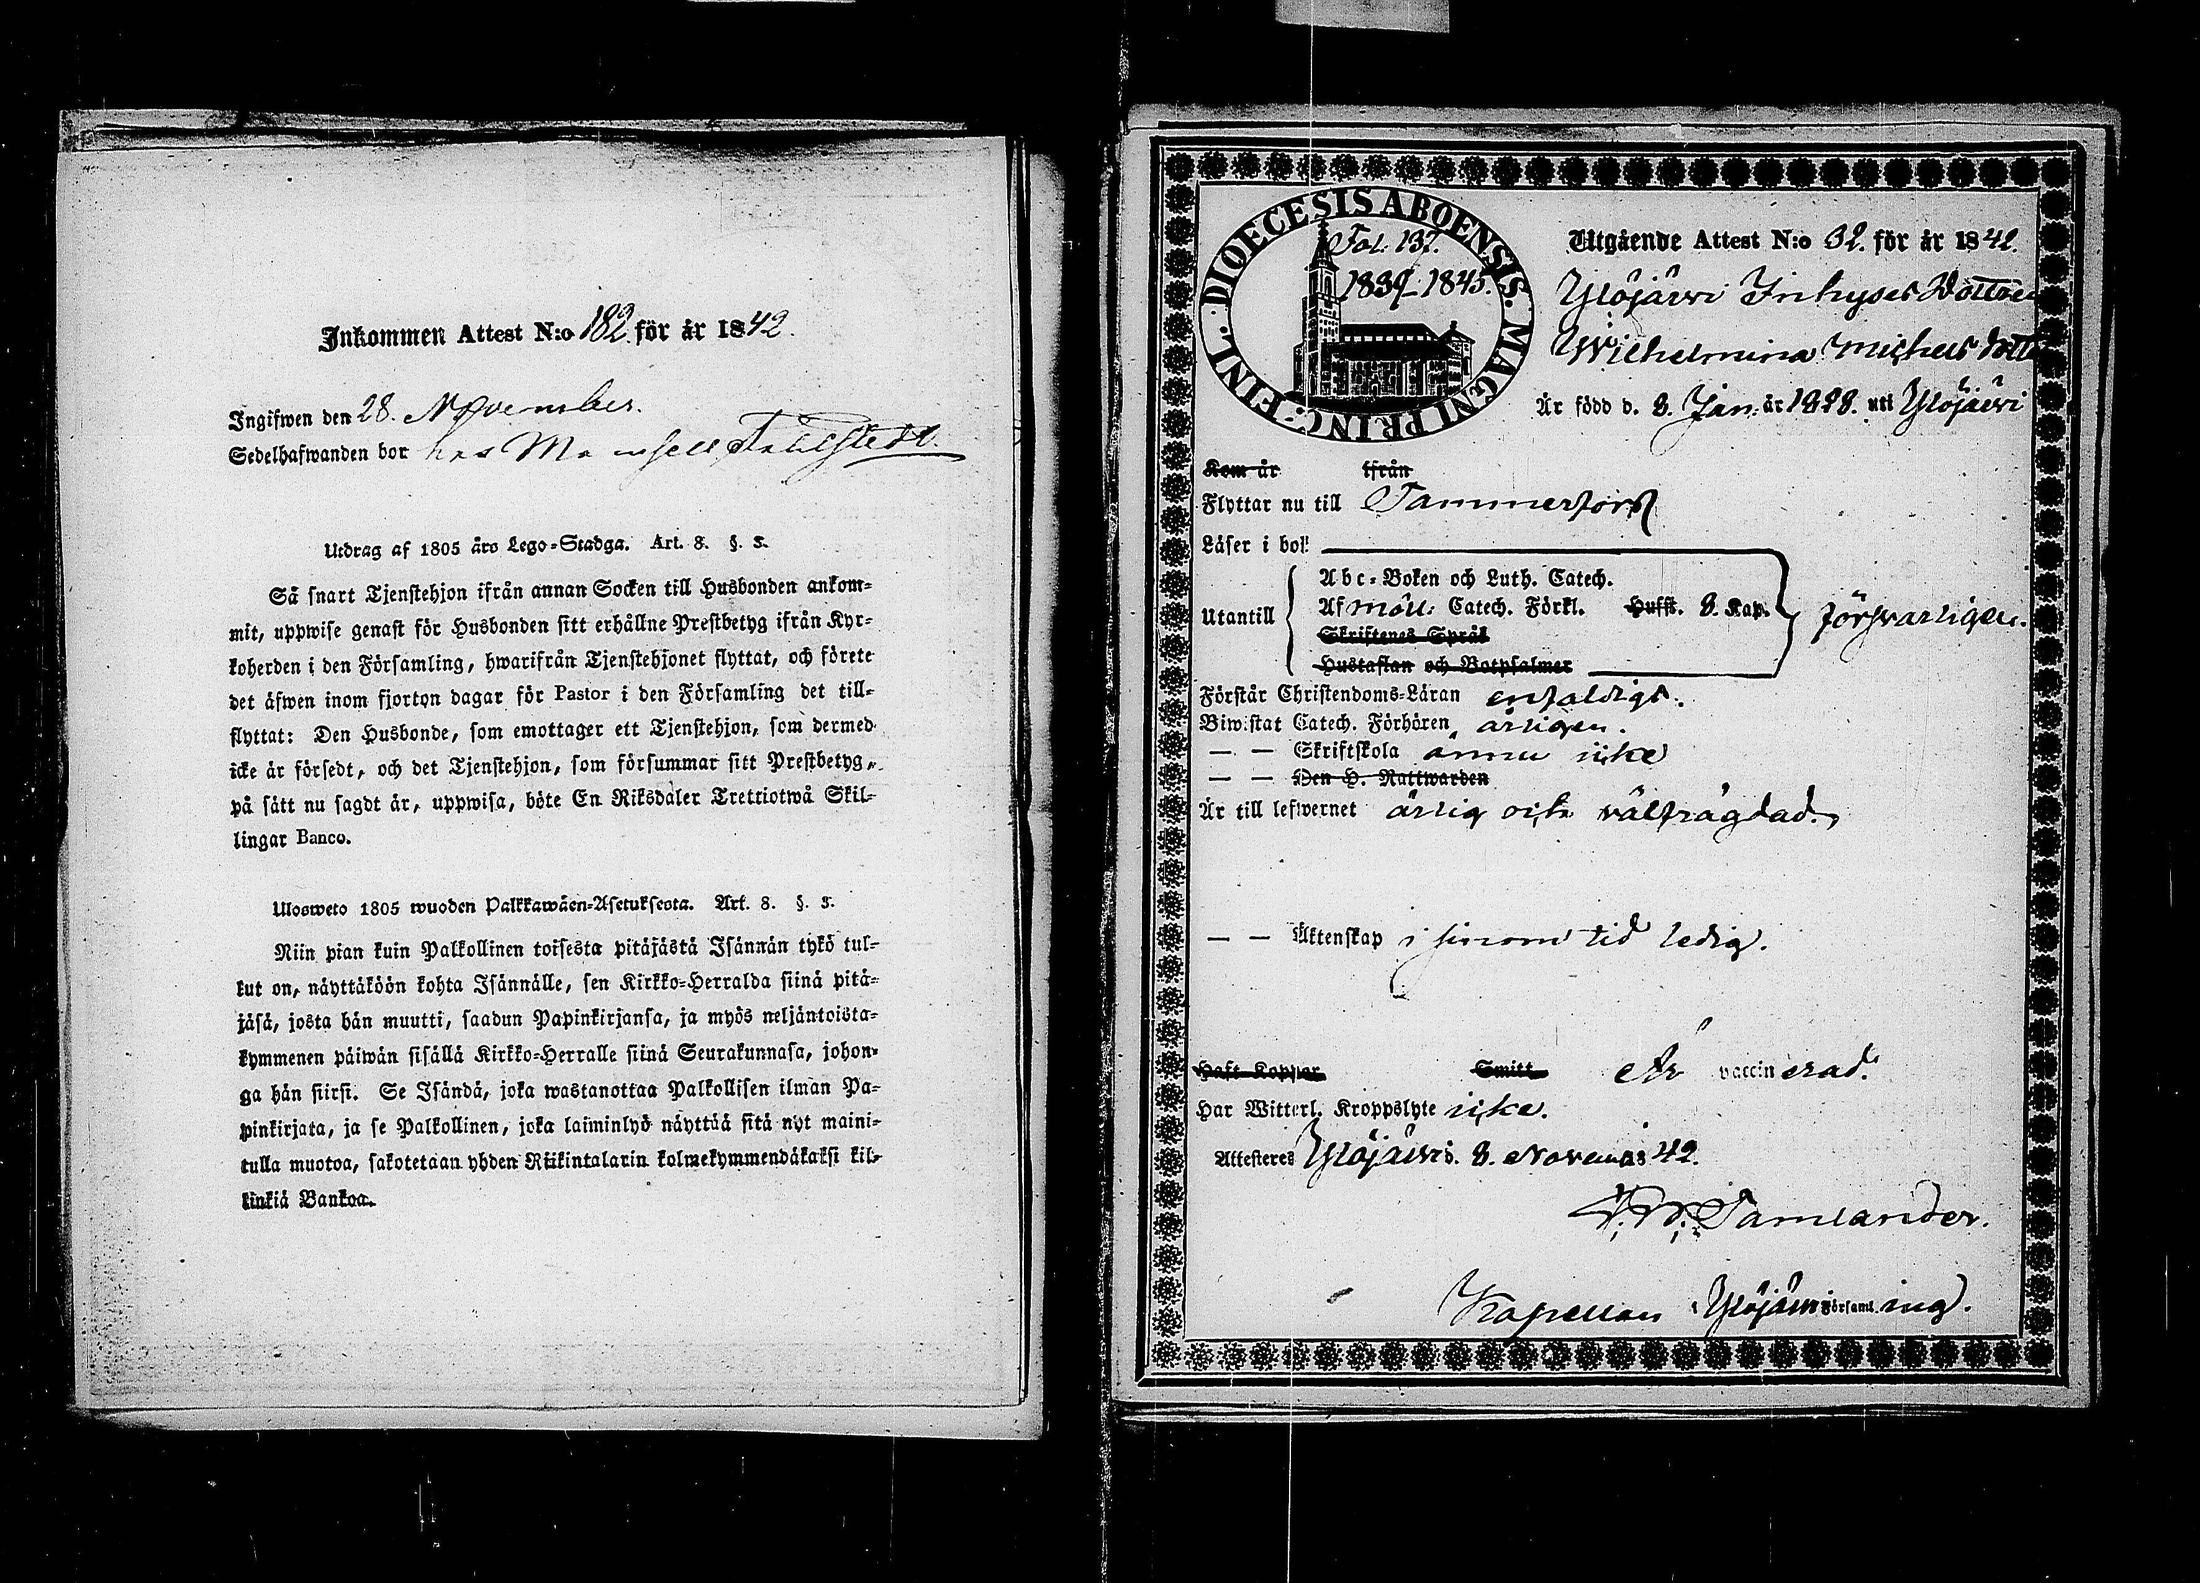 Inkommen Attest N:o 182. för år 1842.
Ingifwen den 28. November.
Sedelhafwanden bor hos Mamsell Fahlstedt
Utdrag af 1805 års Lego-Stadga. Art. 8. §. 3.
Så snart Tjenstehjon ifrån annan Socken till Husbonden ankom-
mit, uppwise genast för Husbonden sitt erhållne Prestbetyg ifrån Kyr-
koherden i den Församling, hwarifrån Tjenstehjonet flyttat, och förete
det äfwen inom fjorton dagar för Pastor i den Församling det till-
flyttat: Den Husbonde, som emottager ett Tjenstehjon, som dermed
icke är försedt, och det Tjenstehjon, som försummar sitt Prestbetyg,
på sätt nu sagdt är, uppwisa, böte En Riksdaler Trettiotwå Skil-
lingar Banco.
Ulosweto 1805 wuoden Palkkawäen-Asetuksesta. Art. 8. §. 3.
Niin pian kuin Palkollinen toisesta pitäjästä Isännän tykö tul-
lut on, näyttäköön kohta Isännälle, sen Kirkko-Herralda siinä pitä-
jäsä, josta hän muutti, saadun Papinkirjansa, ja myös neljäntoista-
kymmenen päiwän sisällä Kirkko-Herralle siinä Seurakunnasa, johon-
ga hän siirsi. Se Isändä, joka wastanottaa Palkollisen ilman Pa-
pinkirjata, ja se Palkollinen, joka laiminlyö näyttää sitä nyt maini-
tulla muotoa, sakotetaan yhden Riikintalarin kolmekymmendäkaksi kil-
linkiä Bankoa.
DIOECESIS ABOENSIS. MAGNI PRINC: FINL.
Fol. 137.
1839-1845.
Utgående Attest N:o 32. för år 1842.
Ylöjärvi Inhyses Dottren
Wilhelmina Michels dotter
Är född d. 8. Jan: år 1828. uti Ylöjärvi
Kom år ifrån
Flyttar nu till Tammerfors
Läser i bok
Utantill
Abc-Boken och Luth. Catech.
Af möll: Catech. Förkl. Hufst. 8. Kap.
Skriftenes Språk
Hustaflan och Botpsalmer
försvarligen.
Förstår Christendoms-Läran enfaldigt.
Biwistat Catech. Förhören årligen.
— — Skriftskola ännu icke
— — Den H. Nattwarden
Är till lefwernet ärlig och välfrägdad.
— — Äktenskap i sinom tid ledig.
Haft Koppor Smitt Är vaccinerad.
Har Witterl. Kroppslyte icke.
Attesteres Ylöjärvi d. 8. November 1842.
Tamlander.
Kapellan i Ylöjärvi Församling.